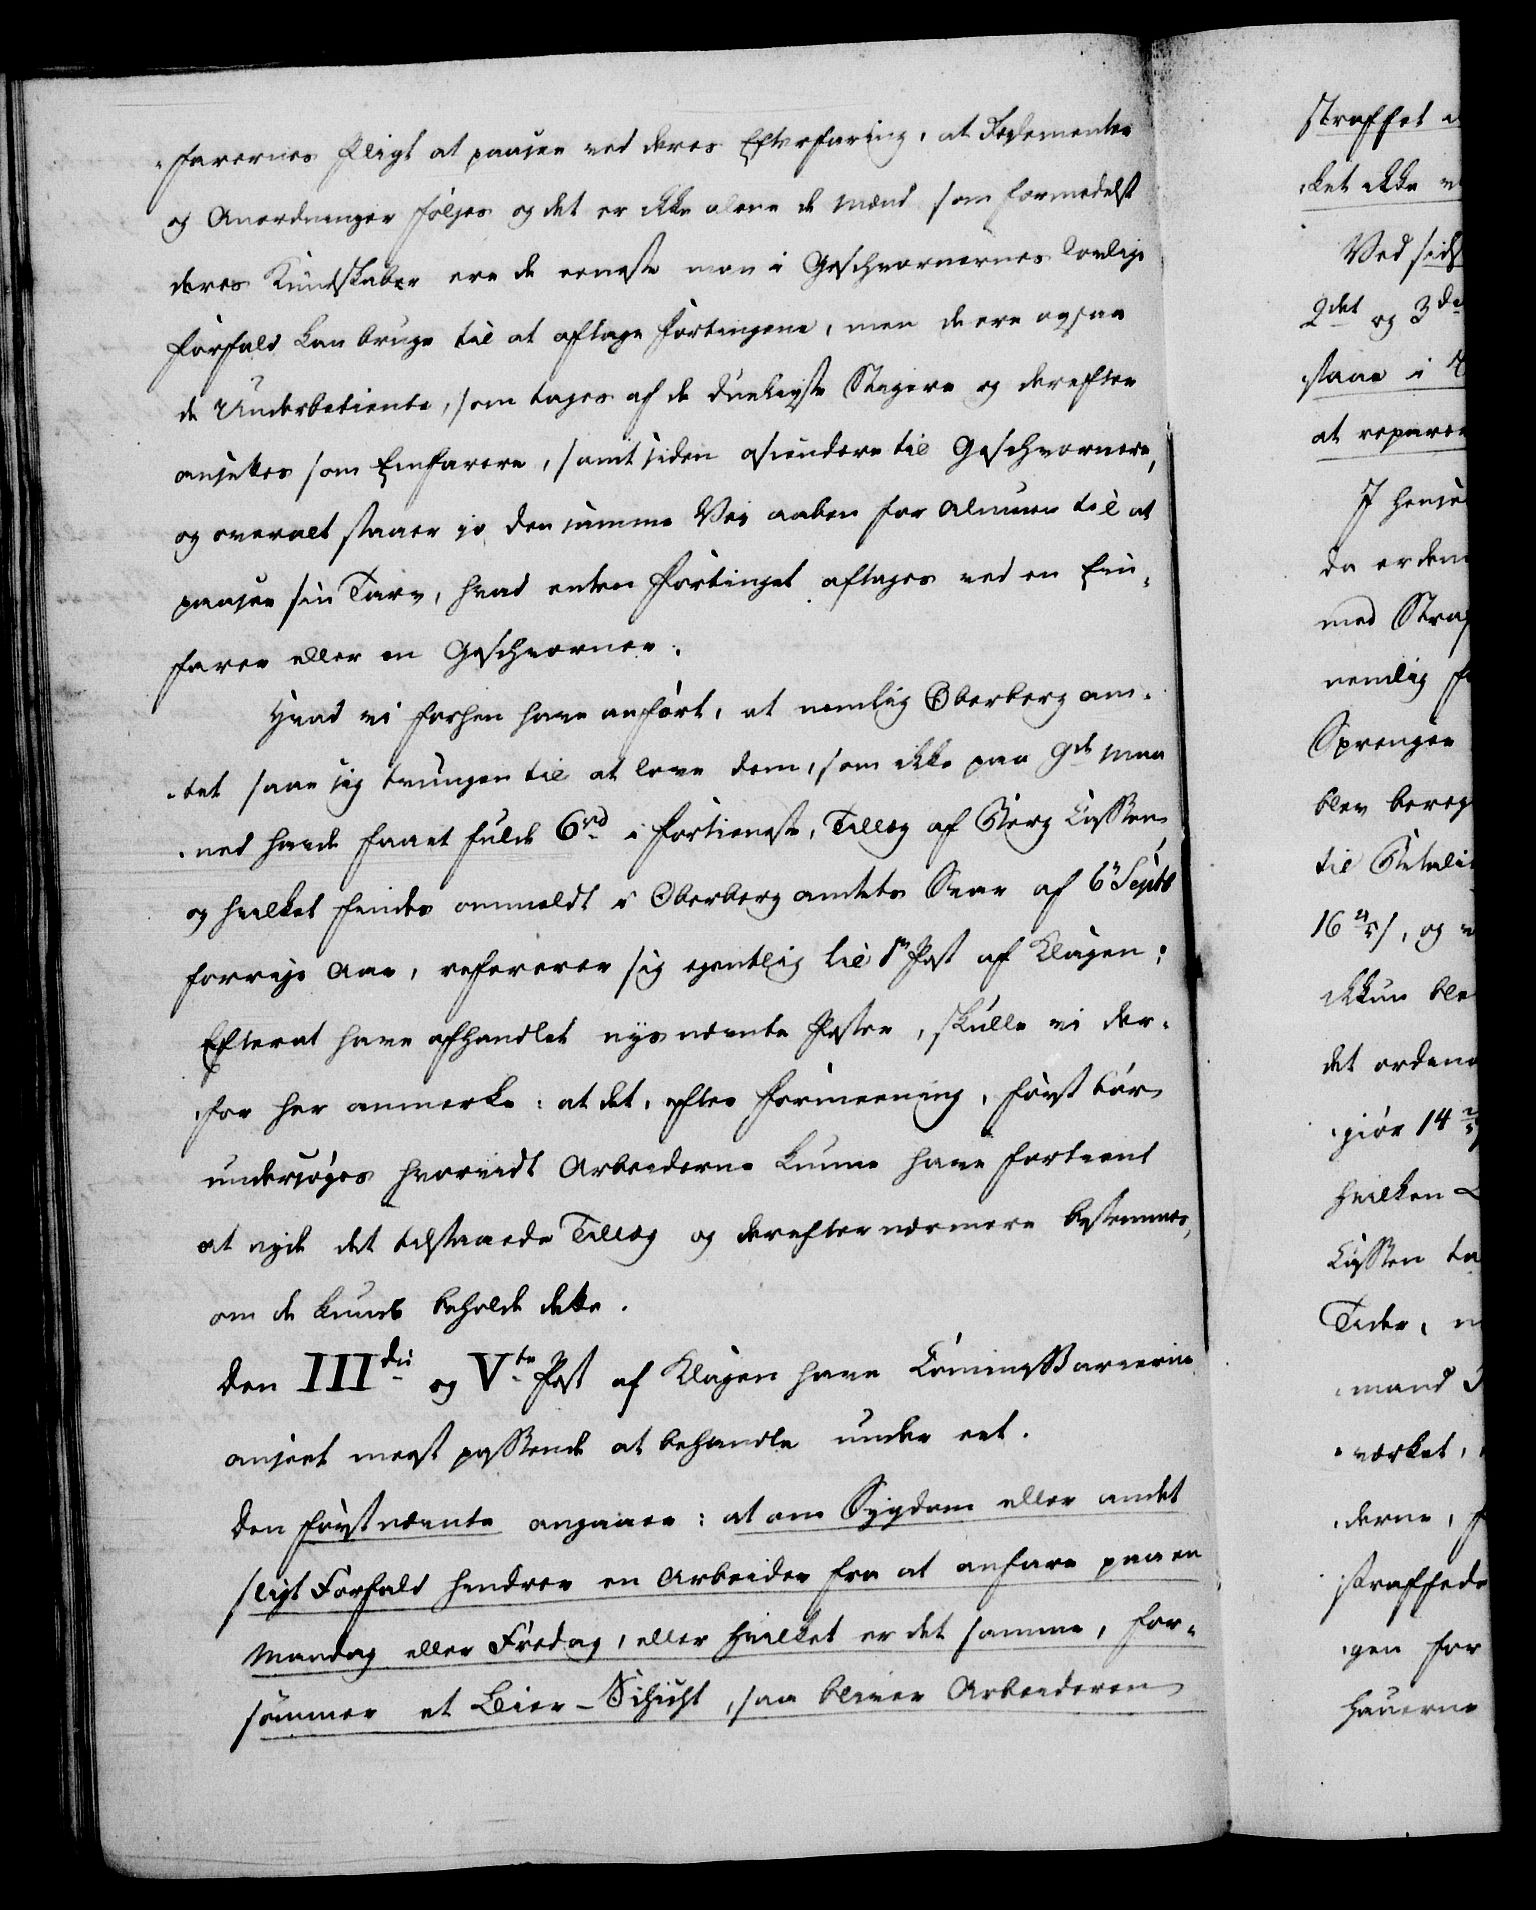 -farernes Pligt at paasee ved deres Efterfaring, at Reglementer
og Anordninger følges og det er ikke alene de Mænd som formedelst
deres Kundskaber ere de eneste man i Geschvornernes lovlige
Forfald kan bruge til at aftage Fortingene, men de ere ogsaa
de Underbetiente, som tages af de dueligste Stigere og derefter
ansættes som Einfarere, samt siden ascendere til Geschvornere,
og overalt staaer jo den samme Vei aaben for Almuen til at
paasee sin Tarv, hvad enten Fortinget aftages ved en Ein-
farer eller en Geschvorner.
Hvad vi forhen have anført, at nemlig Oberbergam-
-tet saae sig tvungen til at love dem, som ikke paa 9de Maa
-ned havde faaet fulde 6 rd i Fortieneste, Tillæg af Berg Cassen,
og hvilket findes anmeldt i Oberbergamtets Svar af 6te Septb
forrige Aar, refererer sig egentlig til 1te Post af Klagen;
Efterat have afhandlet nysnævnte Poster, skulle vi der-
-for her anmærke: at det, efter Formeening, først bør
undersøges hvorvidt Arbeiderne kunne have fortient
at nyde det tilstaaede Tillæg og derefter nærmere bestemmes,
om de kunde beholde dette.
Den IIIdie og Vte Post af Klagen have Commissarierne
anseet meest passende at behandle under eet.
Den førstnævnte angaaer: at om Sygdom eller andet
sligt Forfald hindrer en Arbeider fra at anfare paa en
Mandag eller Fredag, eller hvilket er det samme, for-
sømmer et Bier-Schicht, saa bliver Arbeideren
straffet
-ket ikke
Ved sids
2det og 3die
staae i
at repare
I Hense
da er den
med Straf
nemlig
Sprenger
blev bereg
til Betali
16, og
ikkun ble
det ordena
-giør 14
hvilken
Cassen
Tider,
-mand
-værket,
-derne,
straffede
-gen for
Hauerne